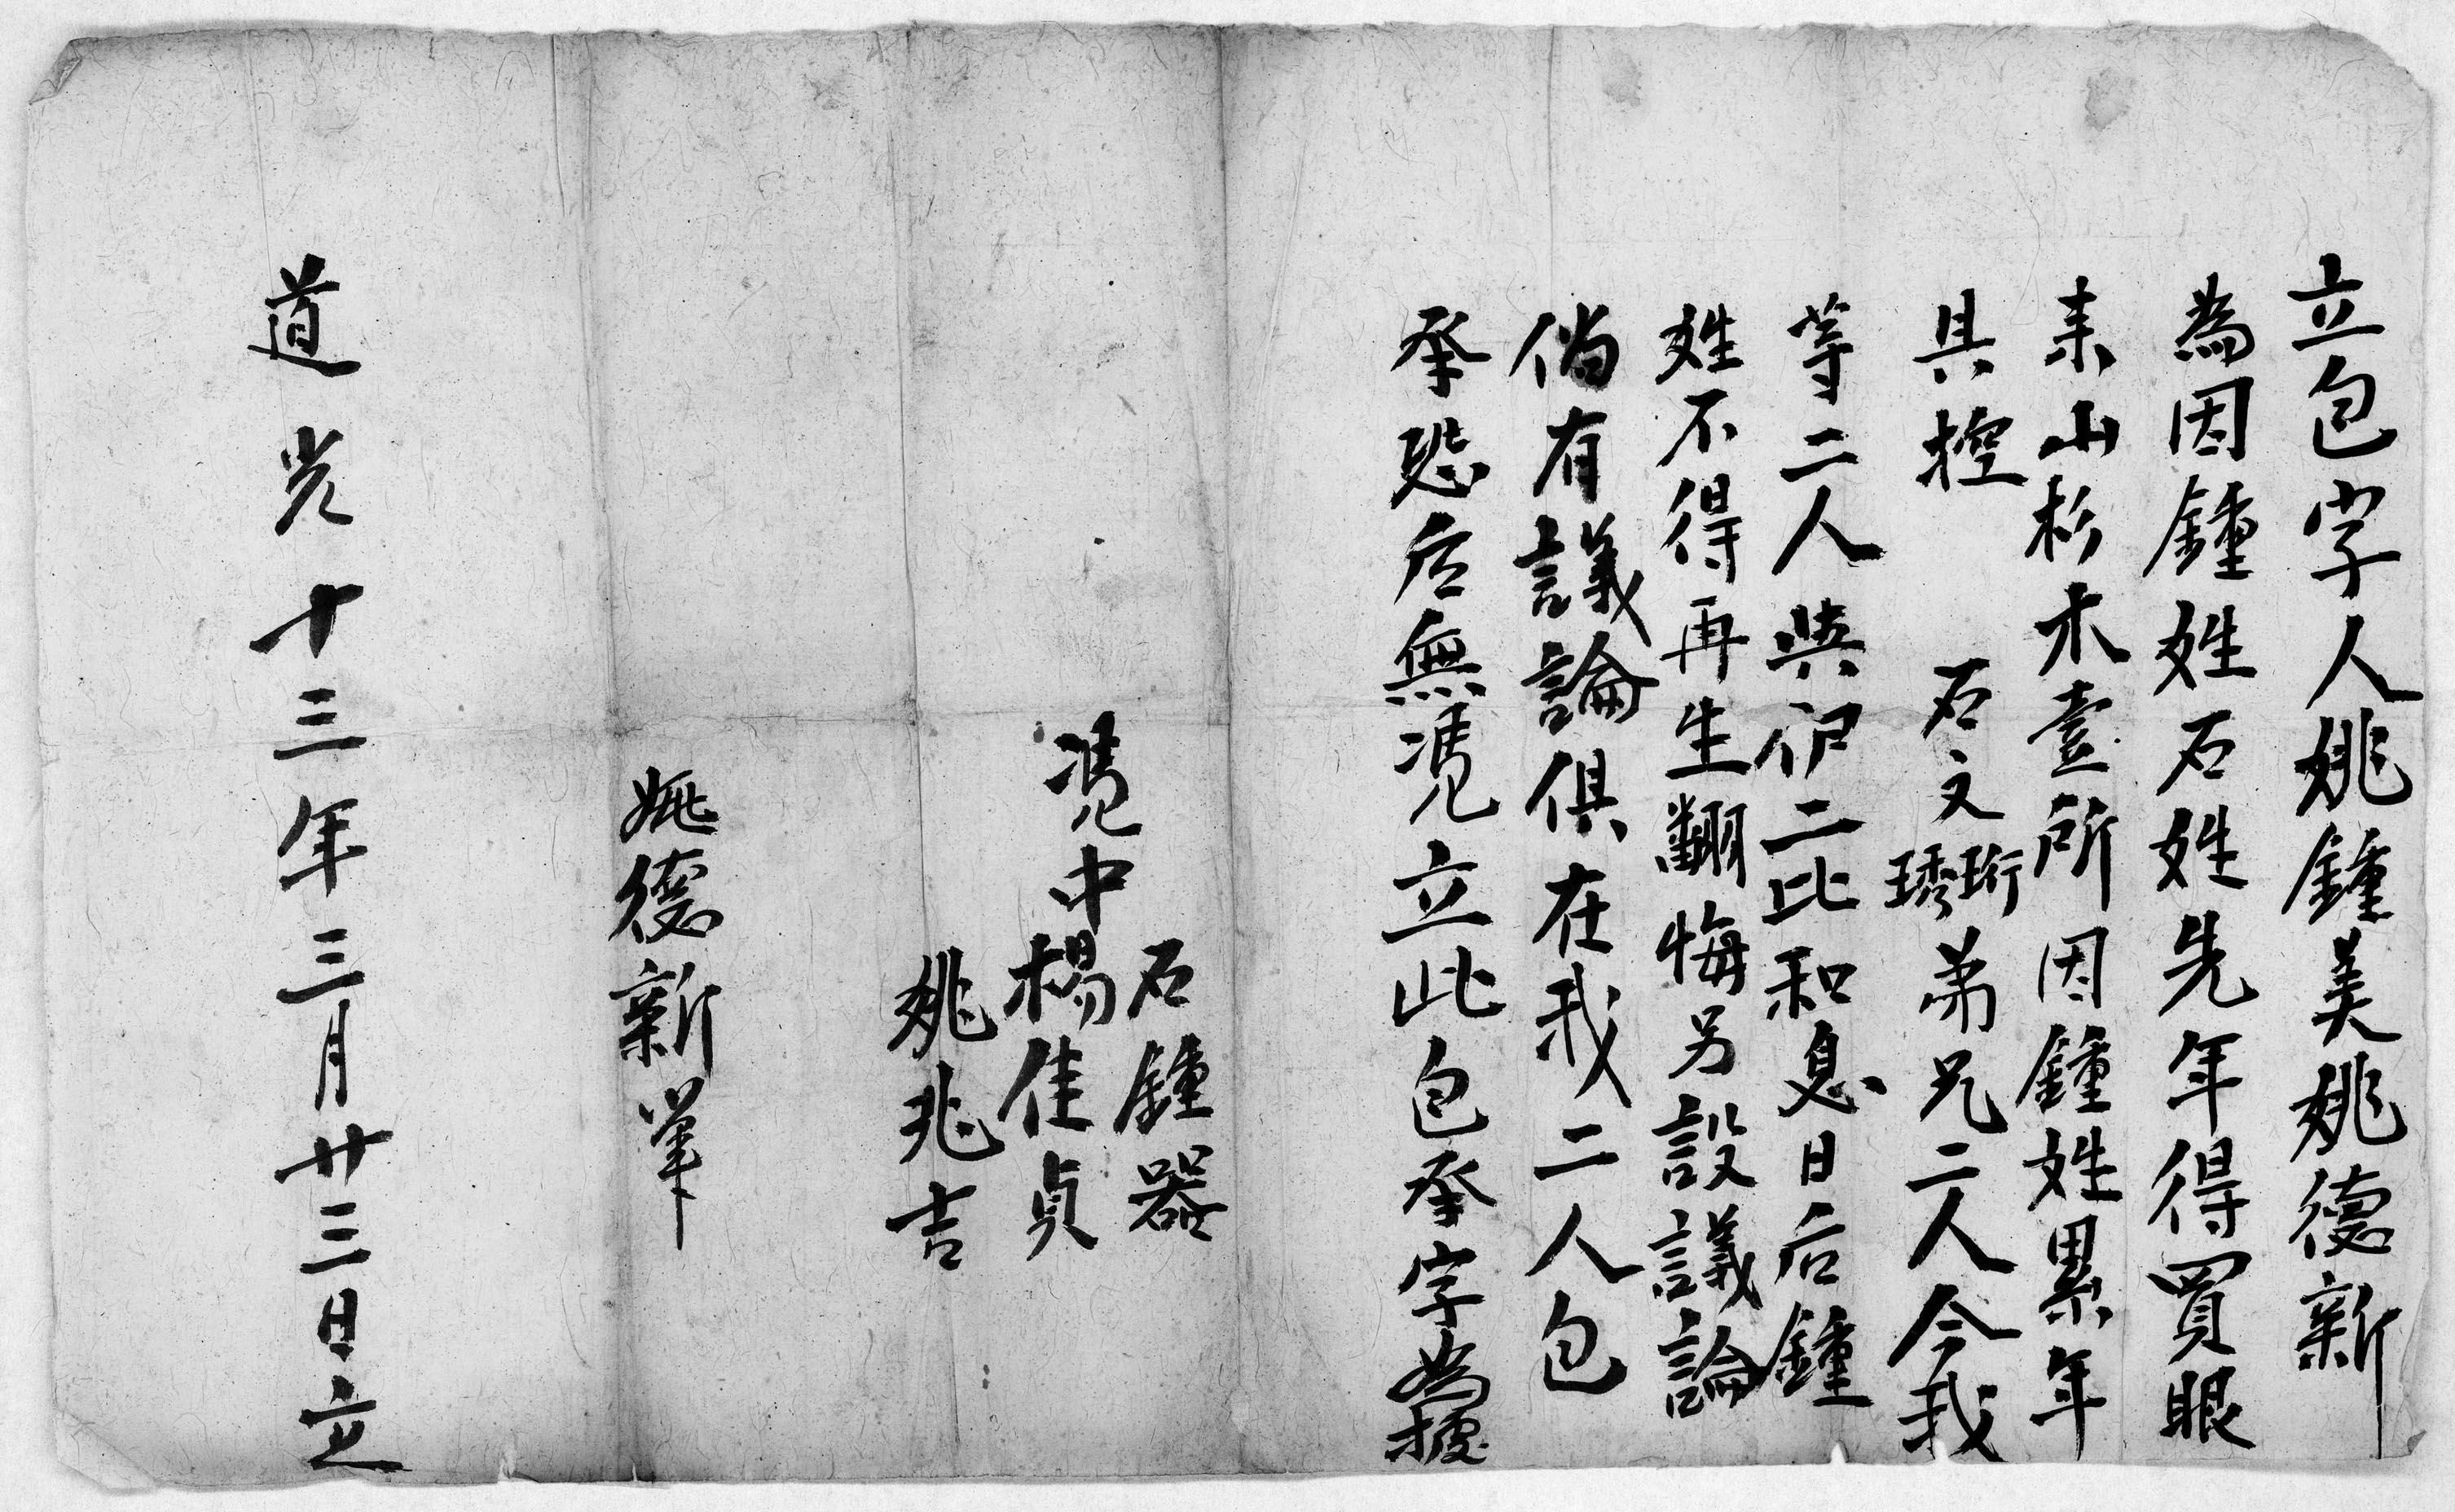 立包字人姚鍾美姚德新
為因鍾姓石姓先年得買眼
耒山杉木壹所因鍾姓累年
具控 石文珩琇弟兄二人今我
等二人與伊二比和息日后鍾
姓不得再生翻悔另設議論
倘有議論俱在我二人包
承恐后無憑立此包承字為據
石鍾器
憑中楊佳貞
姚兆吉
姚德新筆
道光十三年三月廿三日立